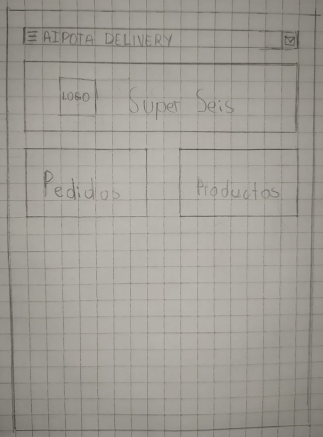 AIPOTA DELIVERY
LOGO
Super Seis
Pedidos
Productos